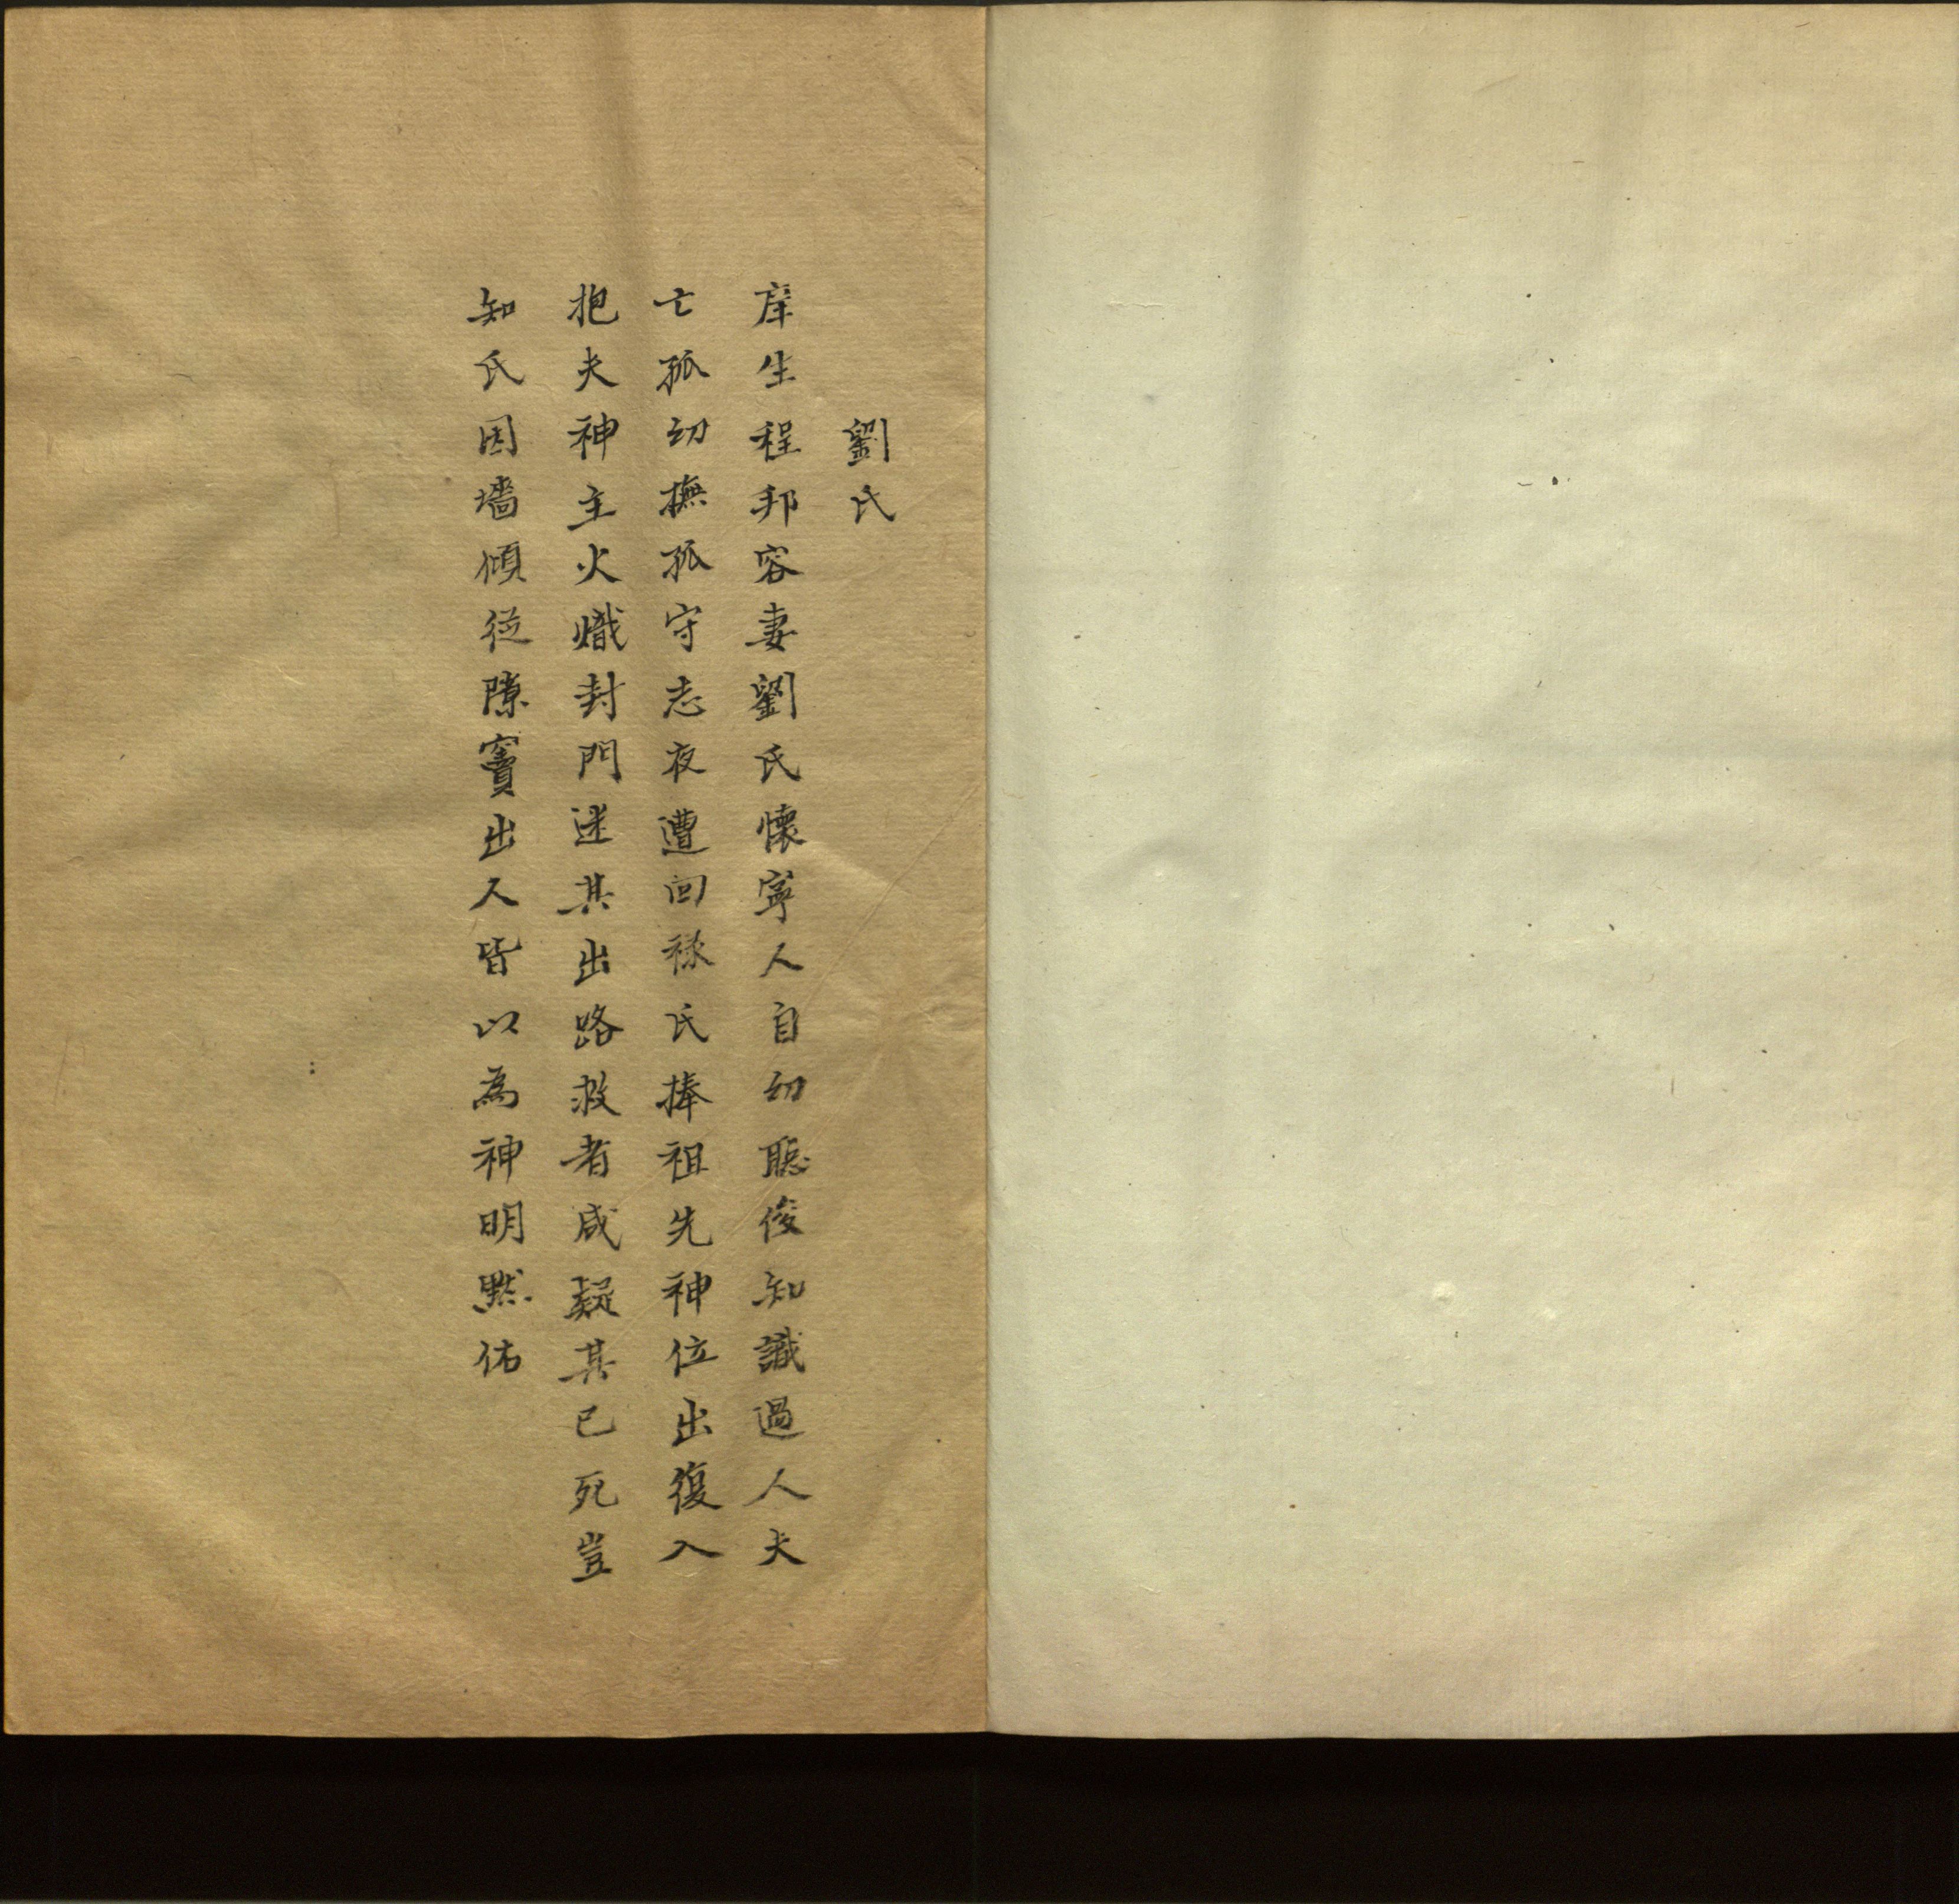 劉氏
庠生程邦容妻劉氏懷寧人自幼聰俊知識過人夫
亡孤幼撫孤守志夜遭回祿氏捧祖先神位出復入
抱夫神主火熾封門迷其出路救者咸疑其已死豈
知氏因墻傾從隙竇出人皆以為神明默佑